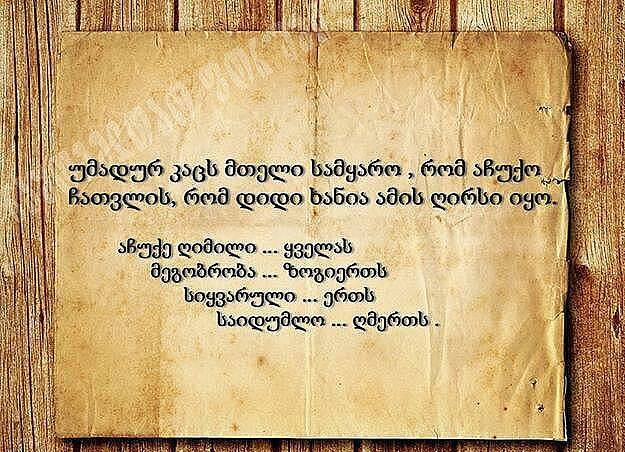 უმადურ კაცს მთელი სამყარო , რომ აჩუქო
ჩათვლის, რომ დიდი ხანია ამის ღირსი იყო.
აჩუქე ღიმილი ... ყველას
მეგობრობა ... ზოგიერთს
სიყვარული ... ერთს
საიდუმლო ... ღმერთს .